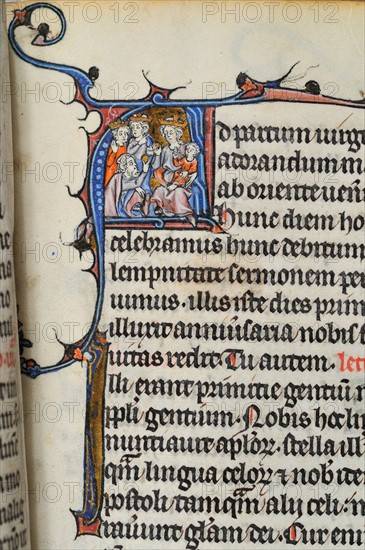 A
d partum uirg
adorandum m
ab oriente uen
hunc diem ho
celebramus hunc debitum
lempnitate sermonem per
uimus. illis iste dies prim
illuxit anniuersaria nobis f
iuitas rediit. Tu autem. lec
Illi erant primitie gentiū n
ppl̄i gentium. Nobis hoc lin
nuntiauit aplōꝝ. stella ill
qm̄ lingua celoꝝ ⁊ nob ide
postoli tamqm̄ alij celi. n
rauunt gl̄am dei. Cur eni
PHOTO12